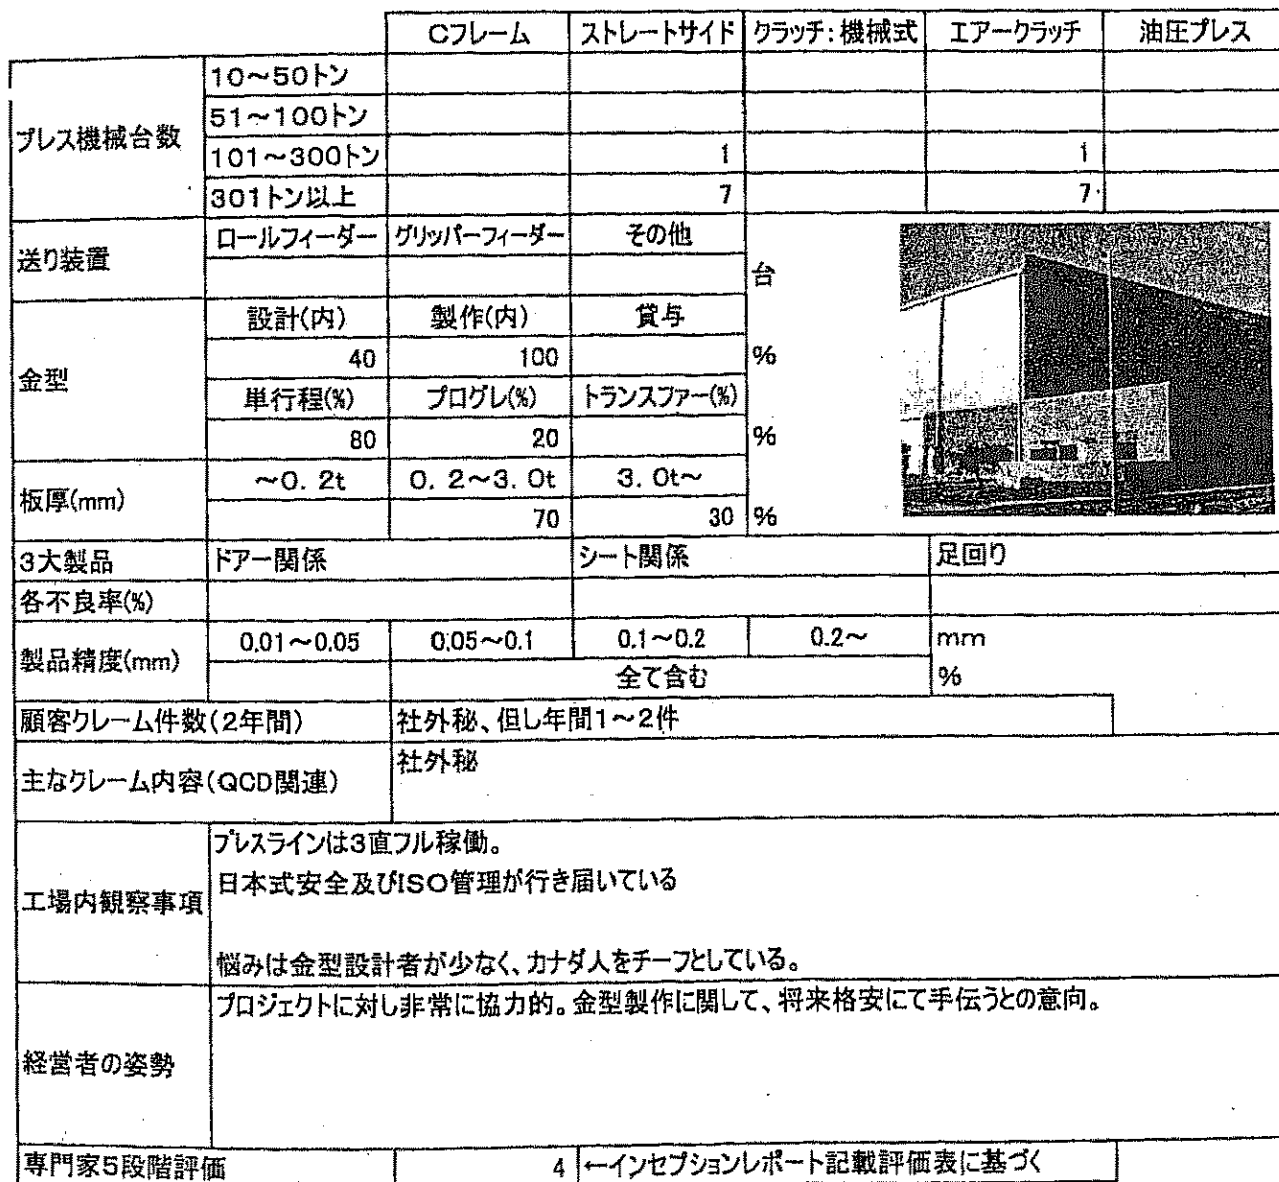 Cフレーム ストレートサイド クラッチ:機械式 エアークラッチ 油圧プレス
プレス機械台数
10～50トン
51～100トン
101～300トン 1 1
301トン以上 7 7
送り装置
ロールフィーダー グリッパーフィーダー その他
台
金型
設計(内) 製作(内) 貸与
40 100 %
単行程(%) プログレ(%) トランスファー(%)
80 20 %
板厚(mm)
～0. 2t 0. 2～3. 0t 3. 0t～
70 30 %
3大製品 ドアー関係 シート関係 足回り
各不良率(%)
製品精度(mm)
0.01～0.05 0.05～0.1 0.1～0.2 0.2～ mm
全て含む %
顧客クレーム件数(2年間) 社外秘、但し年間1～2件
主なクレーム内容(QCD関連) 社外秘
工場内観察事項
プレスラインは3直フル稼働。
日本式安全及びISO管理が行き届いている
悩みは金型設計者が少なく、カナダ人をチーフとしている。
経営者の姿勢
プロジェクトに対し非常に協力的。金型製作に関して、将来格安にて手伝うとの意向。
専門家5段階評価 4 ←インセプションレポート記載評価表に基づく